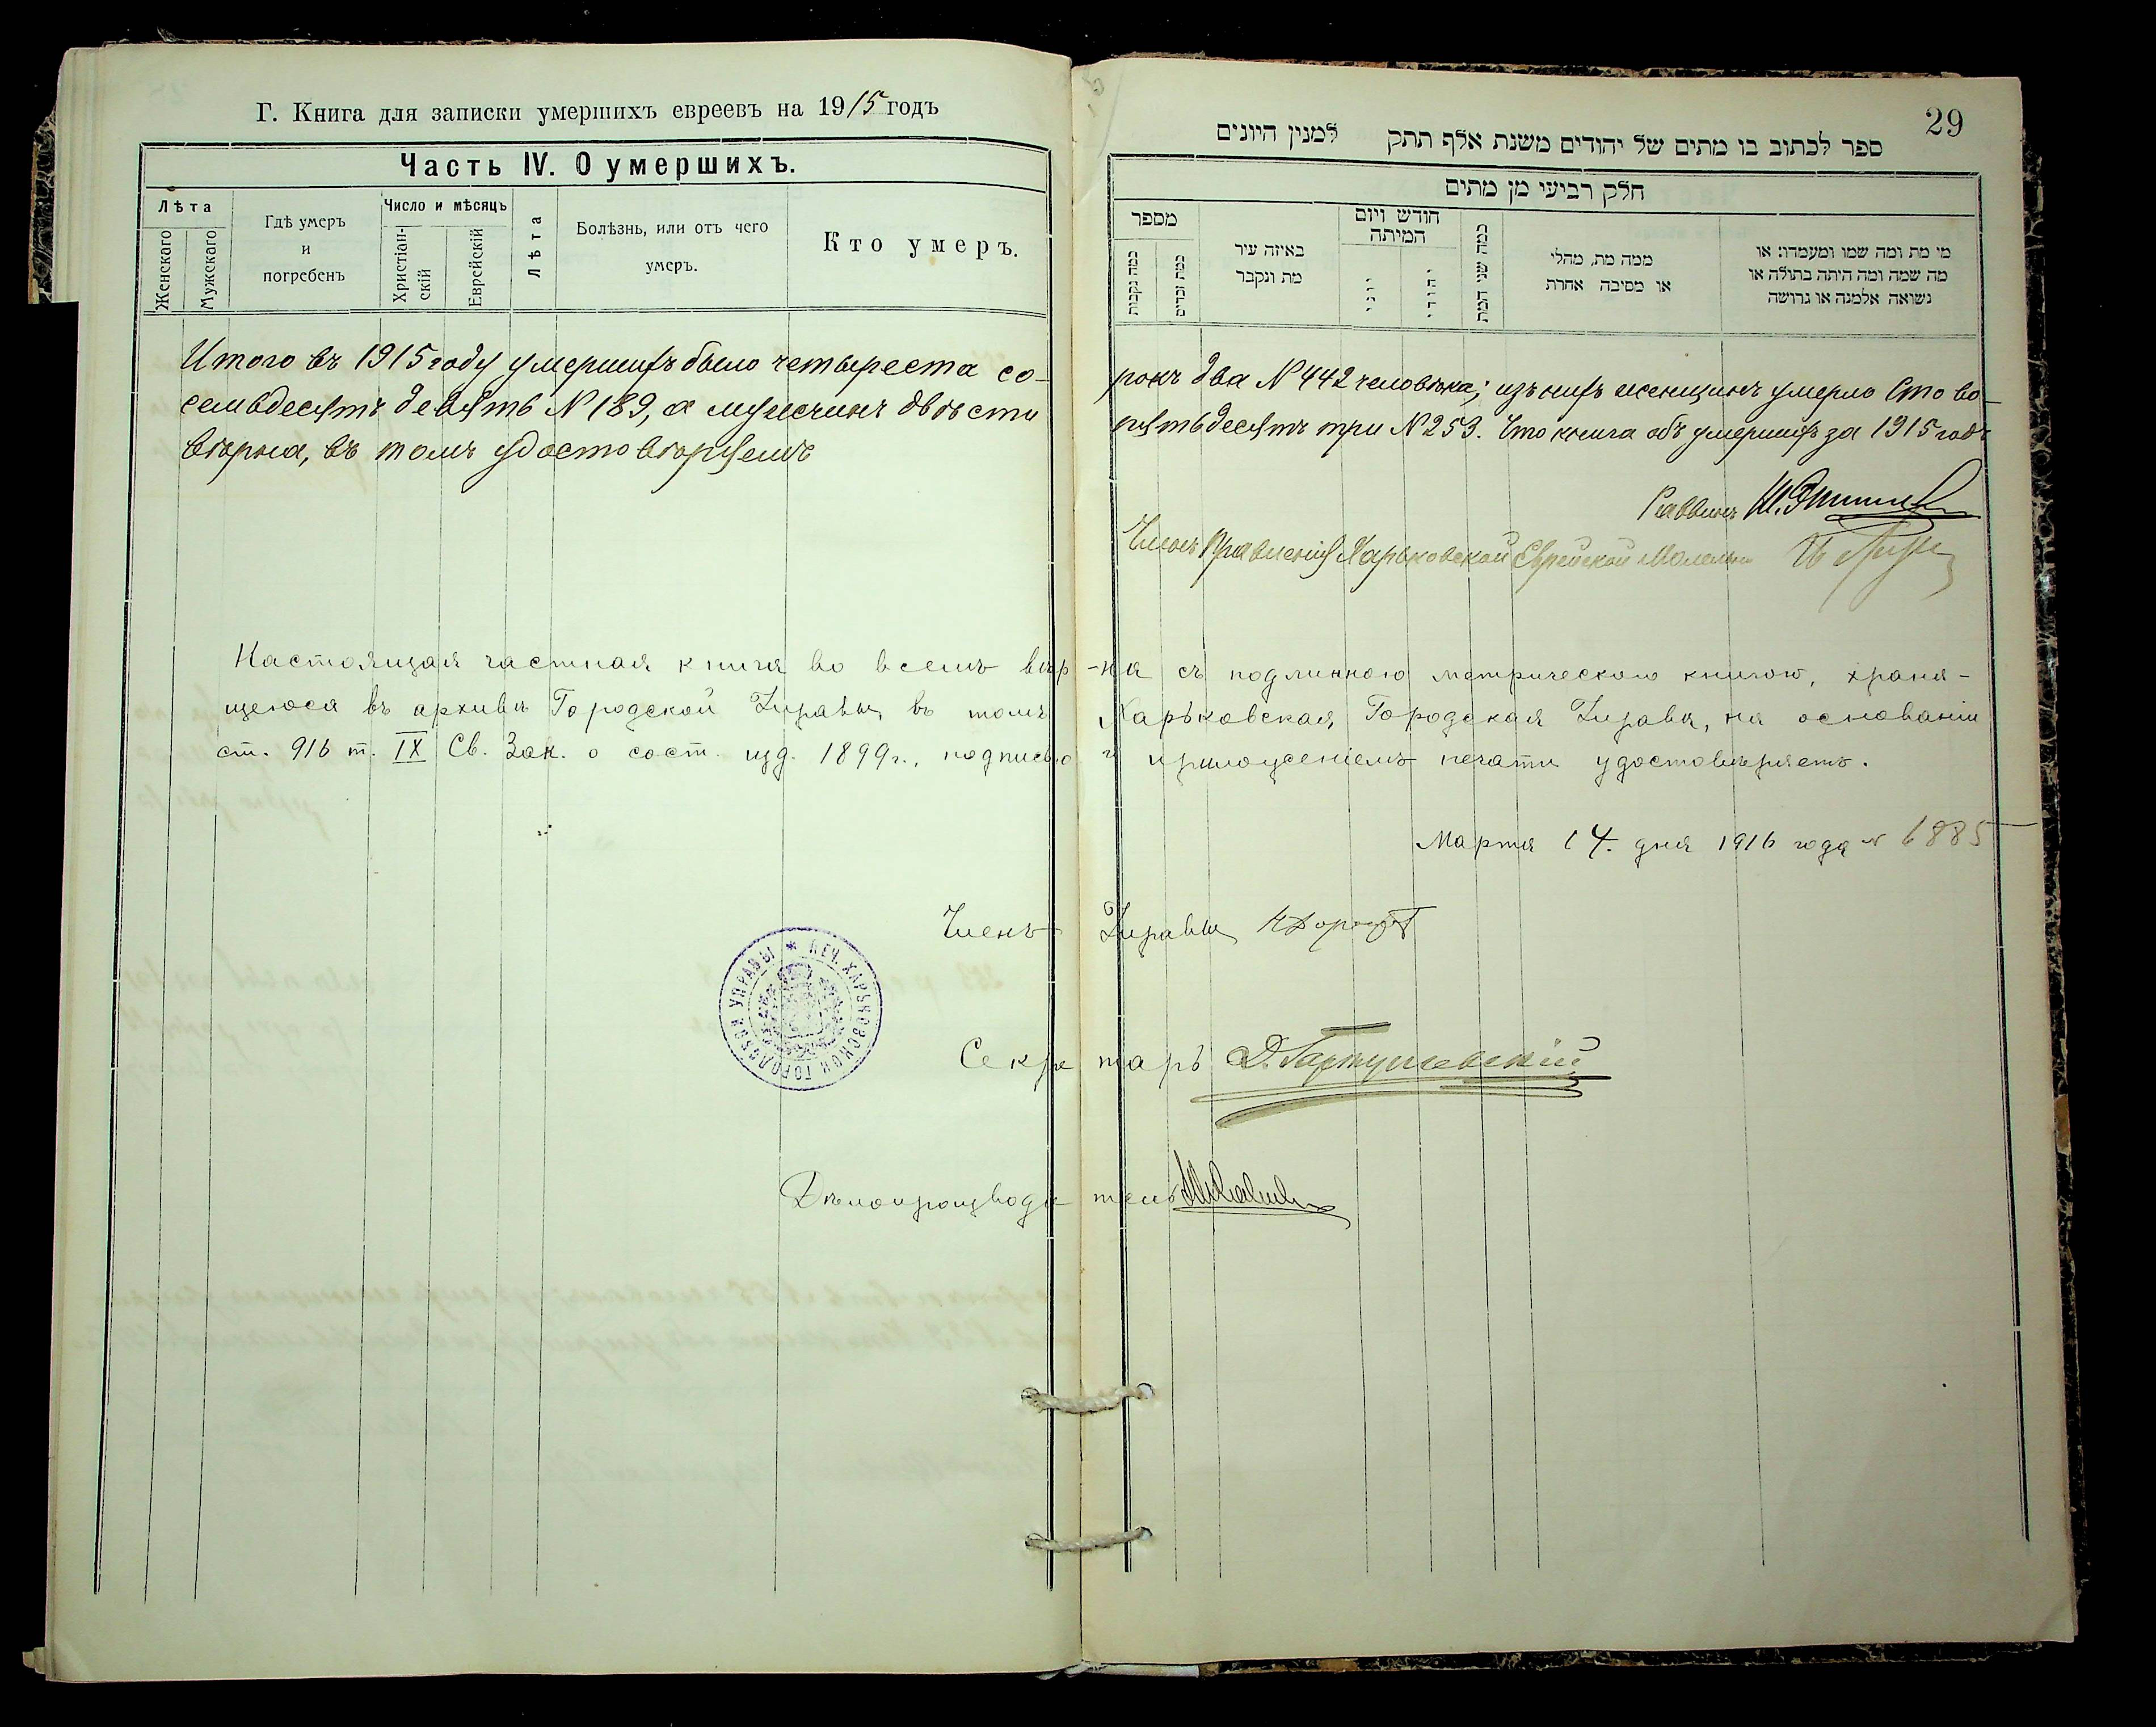 Г. Книга для записки умершихъ евреевъ на 1915 годъ
Часть IV. О умершихъ.
Лѣта
Женскаго
Мужскаго
Гдѣ умеръ
и
погребенъ
Число и мѣсяцъ
Христіан-
скій
Еврейскій
Лѣта
Болѣзнь, или отъ чего
умеръ.
Кто умеръ.
29
ספר לכתוב בו מתים של יהודים משנת אלף תתק למנין היונים
חלק רביעי מן מתים
מספר
כמה נקבות
כמה זכרים
באיזה עיר
מת ונקבר
חודש ויום
המיתה
יוני
יהודי
כמה שני המת
ממה מת, מהלי
או מסיבה אחרת
מי מת ומה שמו ומעמדו: או
מה שמה ומה היתה בתולה או
נשואה אלמנה או גרושה
Итого въ 1915 году умершихъ было четыреста со-рокъ два № 442 человѣка; изъ нихъ женщинъ умерло Сто во-
семьдесятъ девять № 189, а мужчинъ двѣсти пятьдесятъ три № 253. Что книга объ умершихъ за 1915 годъ
вѣрна, въ томъ удостовѣряемъ
Раввинъ
Членъ Правленія Харьковской Еврейской Молельни
Настоящая частная книга во всемъ вѣр-на съ подлинною метрическою книгою, храня-
щеюся въ архивѣ Городской Управы, въ томъ Харьковская Городская Управа, на основаніи
ст. 916 т. IX Св. Зак. о сост. изд. 1899 г., подписью и приложеніемъ печати удостовѣряетъ.
Марта 14 дня 1916 года № 6885
Членъ Управы
ПЕЧ. ХАРЬКОВСКОЙ ГОРОДСКОЙ УПРАВЫ
Секретарь
Дѣлопроизводитель